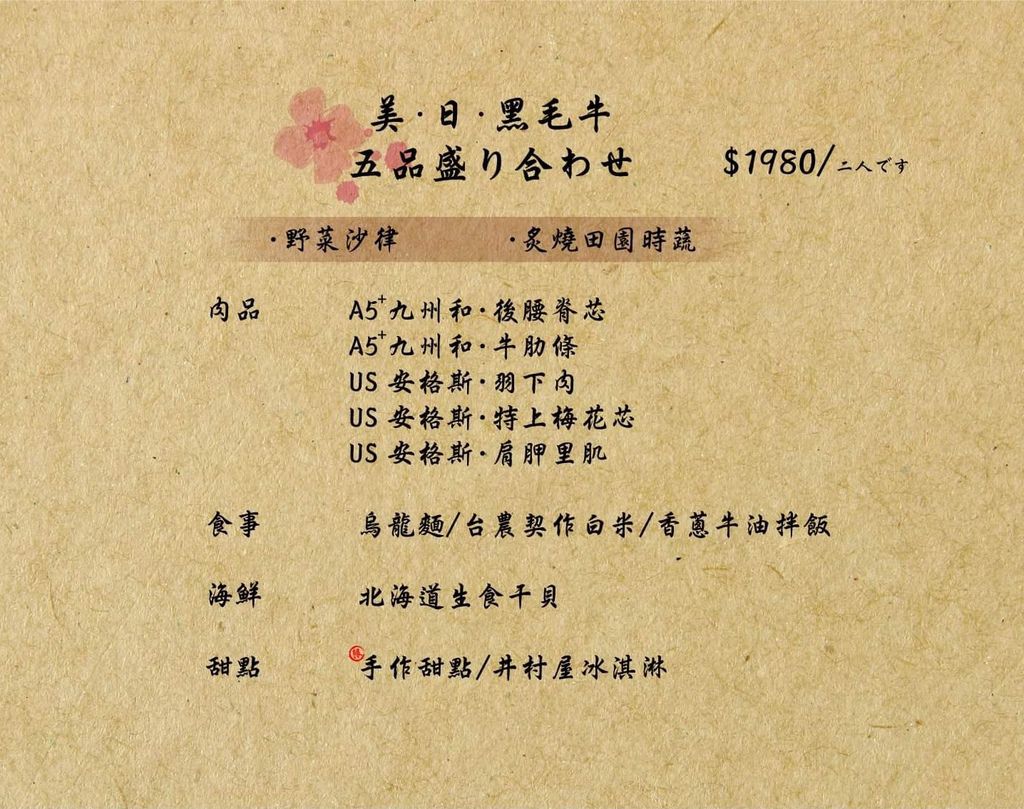 美·日·黑毛牛
五品盛り合わせ $1980/二人です
·野菜沙律 ·炙燒田園時蔬
肉品 A5+九州和·後腰脊芯
A5+九州和·牛肋條
US 安格斯·羽下肉
US 安格斯·特上梅花芯
US 安格斯·肩胛里肌
食事 烏龍麵/台農契作白米/香蔥牛油拌飯
海鮮 北海道生食干貝
甜點 手作甜點/井村屋冰淇淋